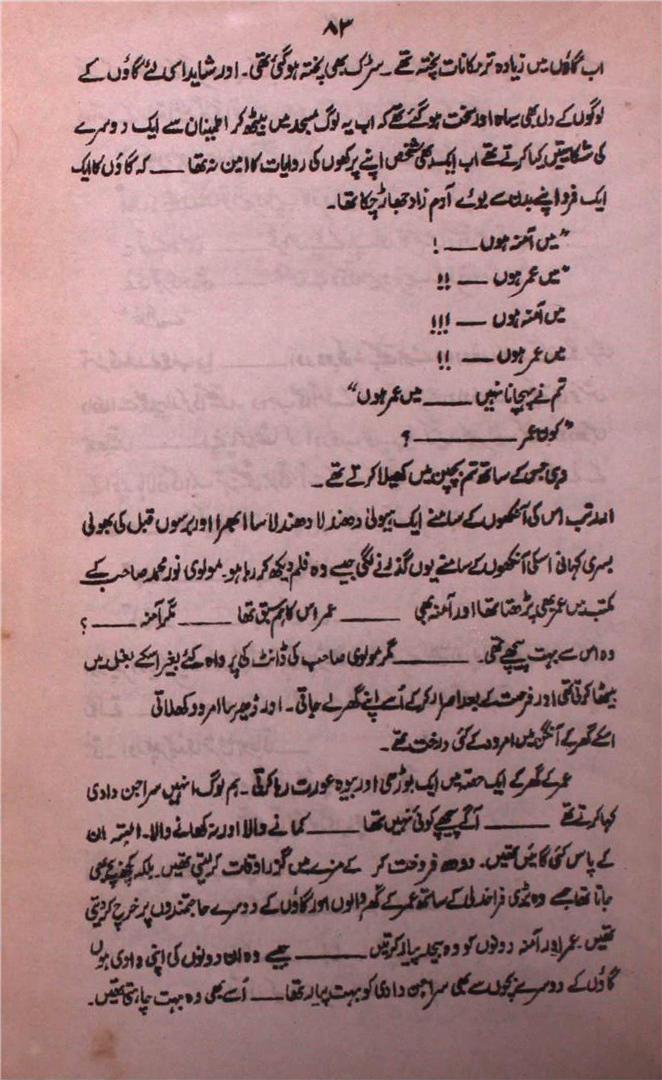 ۸۳
اب گاؤں میں زیادہ تر مکانات پختہ تھے۔ سڑک بھی پختہ ہوگئی تھی۔ اور شاید اسی لئے گاؤں کے
لوگوں کے دل بھی سیاہ اور سخت ہو گئے تھے کہ اب یہ لوگ مسجد میں بیٹھ کر اطمینان سے ایک دوسرے
کی شکایتیں کیا کرتے تھے اب ایک بھی شخص اپنے پرکھوں کی روایات کا امین نہ تھا ــــ کہ گاؤں کا ایک
ایک فرد اپنے بدن سے بوئے آدم زاد جھاڑ چکا تھا۔
"میں آمنہ ہوں ــــ !
"میں عمر ہوں ــــ !!
میں آمنہ ہوں ــــ !!!
میں عمر ہوں ــــ !!
تم نے پہچانا نہیں ــــ میں عمر ہوں"
"کون عمر ــــــــ ؟
وہی جس کے ساتھ تم بچپن میں کھیلا کرتے تھے۔
اور تب اس کی آنکھوں کے سامنے ایک ہیولیٰ دھندلا دھندلا سا ابھرا اور برسوں قبل کی بھولی
بسری کہانی اسکی آنکھوں کے سامنے یوں گذرنے لگی جیسے وہ فلم دیکھ کر رہا ہو۔ مولوی نور محمد صاحب کے
مکتب میں عمر بھی پڑھتا تھا اور آمنہ بھی ــــــ عمر اس کا ہم سبق تھا ــــــ مگر آمنہ ــــــ ؟
وہ اس سے بہت پیچھے تھی۔ ــــــــ مگر مولوی صاحب کی ڈانٹ کی پرواہ کئے بغیر اسکے بغل میں
بیٹھا کرتی تھی اور فرصت کے بعد اصرار کر کے اُسے اپنے گھر لے جاتی۔ اور ڈھیر سا امرود کھلاتی
اسکے گھر کے آنگن میں امرود کے کئی درخت تھے۔
عمر کے گھر کے ایک حصّہ میں ایک بوڑھی اور بیوہ عورت رہا کرتی۔ ہم لوگ انہیں سراجن دادی
کہا کرتے تھے ــــــــ آگے پیچھے کوئی نہیں تھا ــــــ کمانے والا اور نہ کھانے والا۔ البتہ ان
کے پاس کئی گائیں تھیں۔ دودھ فروخت کر کے مزے میں گذر اوقات کر لیتی تھیں۔ بلکہ کچھ بچ بھی
جاتا تھا جسے وہ بڑی فراخدلی کے ساتھ عمر کے گھر والوں اور گاؤں کے دوسرے حاجتمندوں پر خرچ کر دیتی
تھیں۔ عمر اور آمنہ دونوں کو وہ بیحد پیار کرتیں ــــــــ جیسے وہ ان دونوں کی اپنی دادی ہوں
گاؤں کے دوسرے بچوں سے بھی سراجن دادی کو بہت پیار تھا ــــ اُسے بھی وہ بہت چاہتی تھیں۔